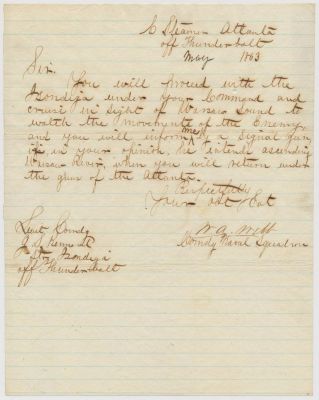 C. Steamer Atlanta
off Thunderbolt
May 1863
Sir.
You will proceed with the
Isondiga under your Command and
cruise in sight of Warsaw Sound to
watch the movements of the Enemy,
and you will inform me by a signal gun,
if in your opinion, he intends ascending
Warsaw River, when you will return under
the guns of the Atlanta.
Respectfully
Your obt Svt
W. A. Webb
Comdg Naval Squadron
Lieut Comdg
J. S. Kennard
Str Isondiga
off Thunderbolt